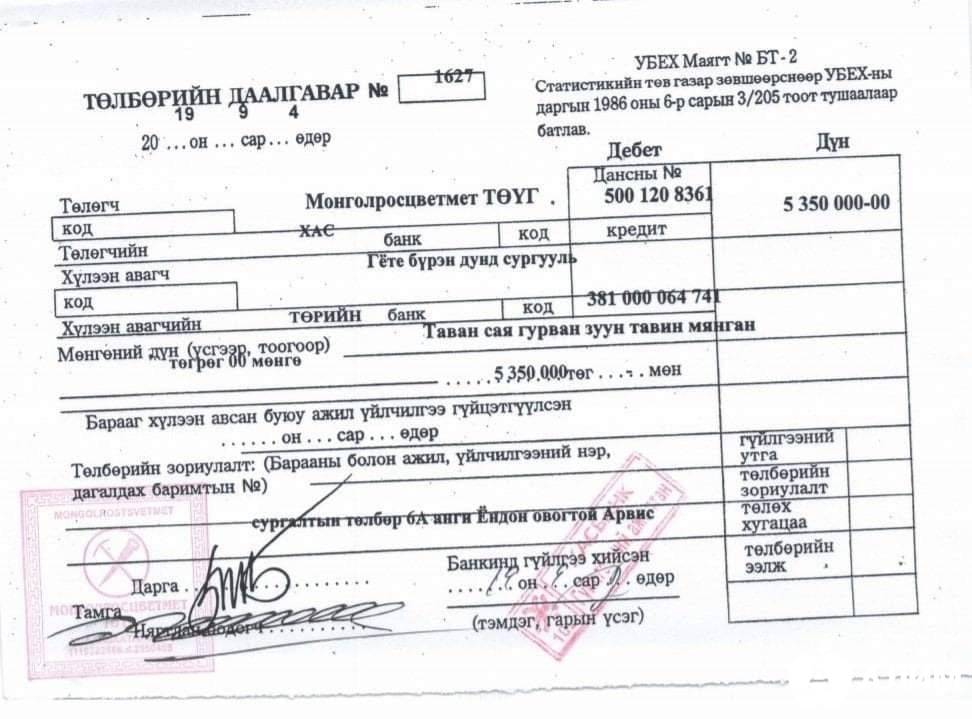 УБЕХ Маягт № БТ - 2
Статистикийн төв газар зөвшөөрснөөр УБЕХ-ны
даргын 1986 оны 6-р сарын 3/205 тоот тушаалаар
батлав.
ТӨЛБӨРИЙН ДААЛГАВАР № 1627
19 9 4
20 ... он ... сар ... өдөр
Дебет Дүн
Дансны №
Төлөгч Монголросцветмет ТӨҮГ . 500 120 8361 5 350 000-00
код
ХАС банк код кредит
Төлөгчийн
Гёте бүрэн дунд сургууль
Хүлээн авагч
код
ТӨРИЙН банк код 381 000 064 741
Хүлээн авагчийн
Таван сая гурван зуун тавин мянган
Мөнгөний дүн (үсгээр, тоогоор)
төгрөг 00 мөнгө
5 350 000 төг мөн
Барааг хүлээн авсан буюу ажил үйлчилгээ гүйцэтгүүлсэн
...... он ... сар ... өдөр
гүйлгээний
утга
Төлбөрийн зориулалт: (Барааны болон ажил, үйлчилгээний нэр,
дагалдах баримтын №)
төлбөрийн
зориулалт
сургалтын төлбөр 6А анги Ёндон овогтой Арвис
төлөх
хугацаа
төлбөрийн
ээлж
Банкинд гүйлгээ хийсэн
19 он сар өдөр
(тэмдэг, гарын үсэг)
Дарга
Тамга
Нягтлан бодогч
MONGOLROSTSVETMET
МОНГОЛРОСЦВЕТМЕТ